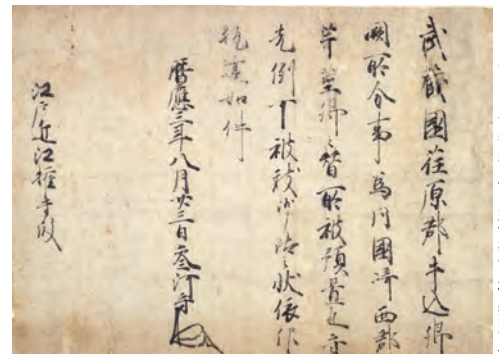 武藏國荏原郡牛込郷
闕所分事為同國﨑西郡
芋莖郷之替所被預置也守
先例可被致沙汰之状依仰
執達如件
暦應三年八月廿三日参河守
江戸近江權守殿